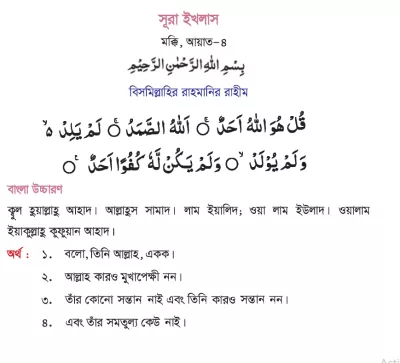 সূরা ইখলাস
মক্কি, আয়াত-৪
بِسْمِ اللهِ الرَّحْمٰنِ الرَّحِيْمِ
বিসমিল্লাহির রাহমানির রাহীম
قُلْ هُوَ اللهُ اَحَدٌ ۚ اَللهُ الصَّمَدُ ۚ لَمْ يَلِدْ ۙ
وَلَمْ يُوْلَدْ ۙ وَلَمْ يَكُنْ لَّهٗ كُفُوًا اَحَدٌ
বাংলা উচ্চারণ
ক্বুল হুয়াল্লাহু আহাদ। আল্লাহুস সামাদ। লাম ইয়ালিদ; ওয়া লাম ইউলাদ। ওয়ালাম
ইয়াকুল্লাহু কুফুয়ান আহাদ।
অর্থ : ১. বলো, তিনি আল্লাহ, একক।
২. আল্লাহ কারও মুখাপেক্ষী নন।
৩. তাঁর কোনো সন্তান নাই এবং তিনি কারও সন্তান নন।
৪. এবং তাঁর সমতুল্য কেউ নাই।